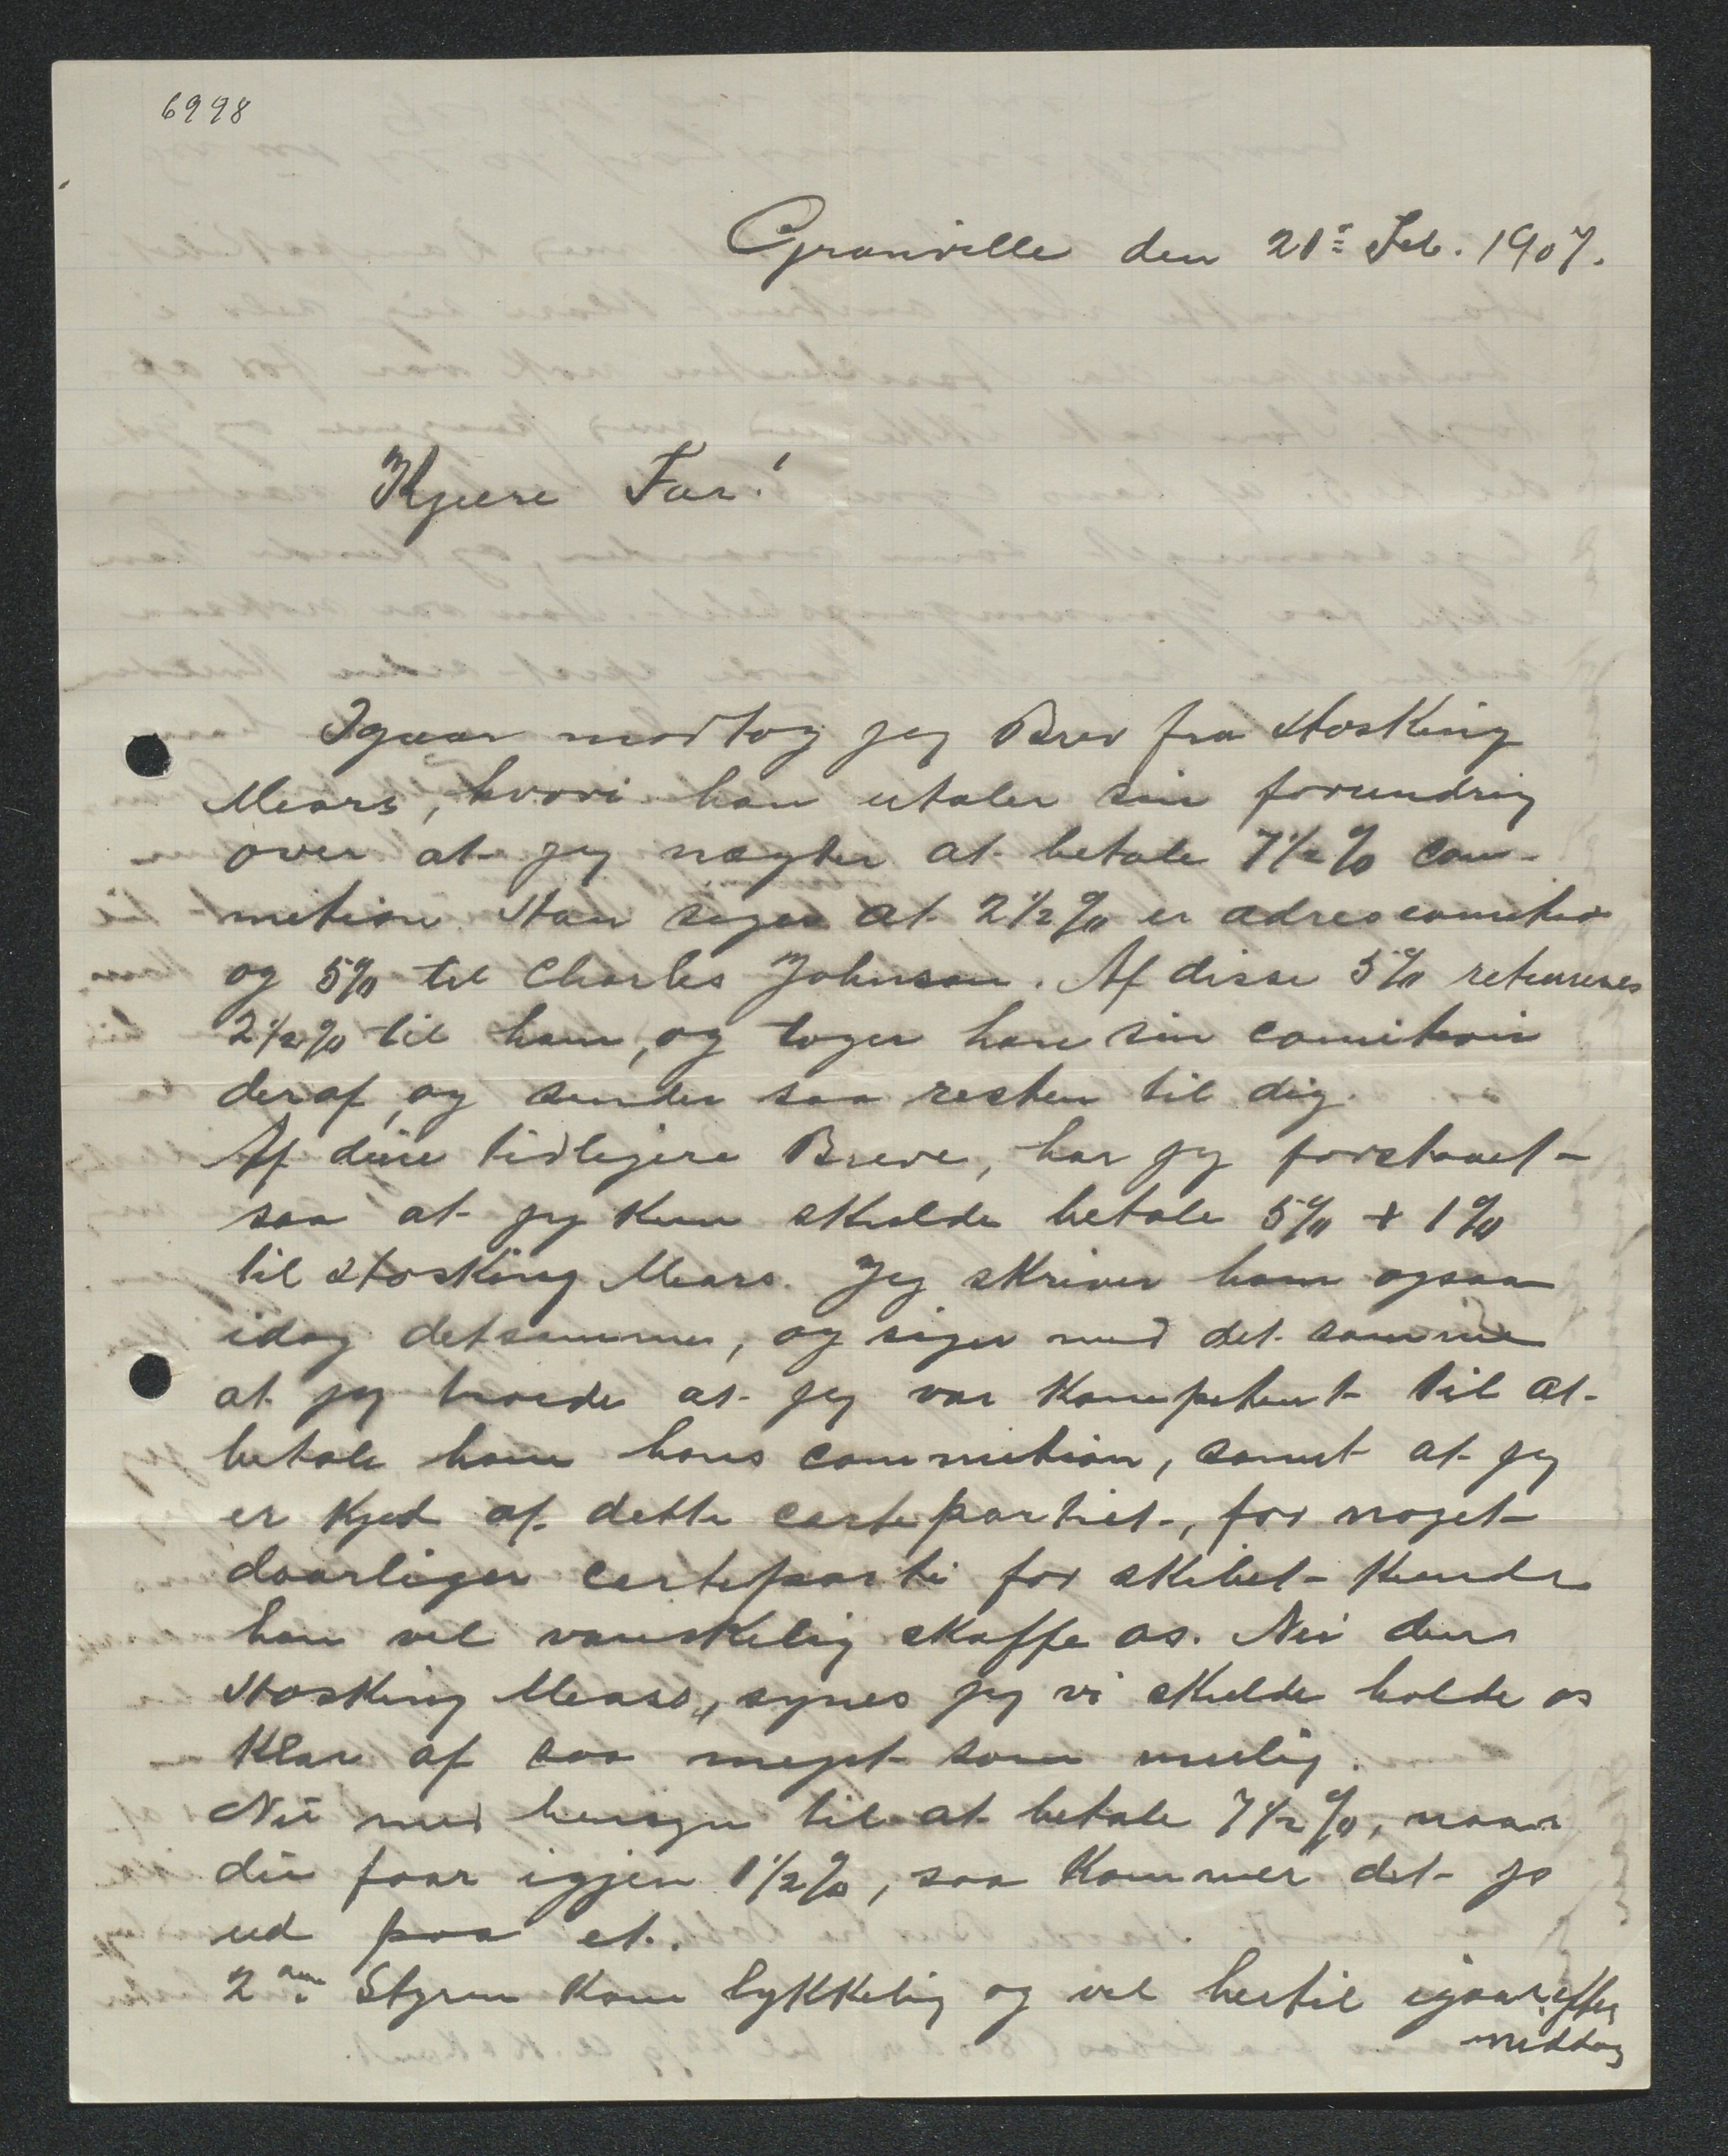 6998
Granville den 21= Feb. 1907.
Kjære Far!
Igaar modtog jeg Brev fra Hosking
Mears, hvori han utaler sin forundring
over at jeg nægter at betale 7 1/2 % com-
mition. Han siger at 2 1/2 % er adres comition
og 5 % til Charles Johnson. Af disse 5 % returneres
2 1/2 % til ham, og tager han sin comition
deraf, og sender saa resten til dig.
Af dine tidligere Breve, har jeg forstaaet
saa at jeg kun skulde betale 5 % + 1 %
til Hosking Mears. Jeg skriver ham ogsaa
idag detsamme, og siger med det samme
at jeg troede at jeg var kompetent til at
betale ham hans commition, samt at jeg
er kjed af dette certepartiet, for noget
daarliger certeparti for skibet kunde
han vel vanskelig skaffe os. Nei denne
Hosking Mears, synes jeg vi skulde holde os
klar af saa meget som mulig.
Nu med hensyn til at betale 7 1/2 %, naar
du faar igjen 1 1/2 %, saa kommer det jo
ud paa et.
2den Styrm kom lykkelig og vel hertil igaar efter
middag